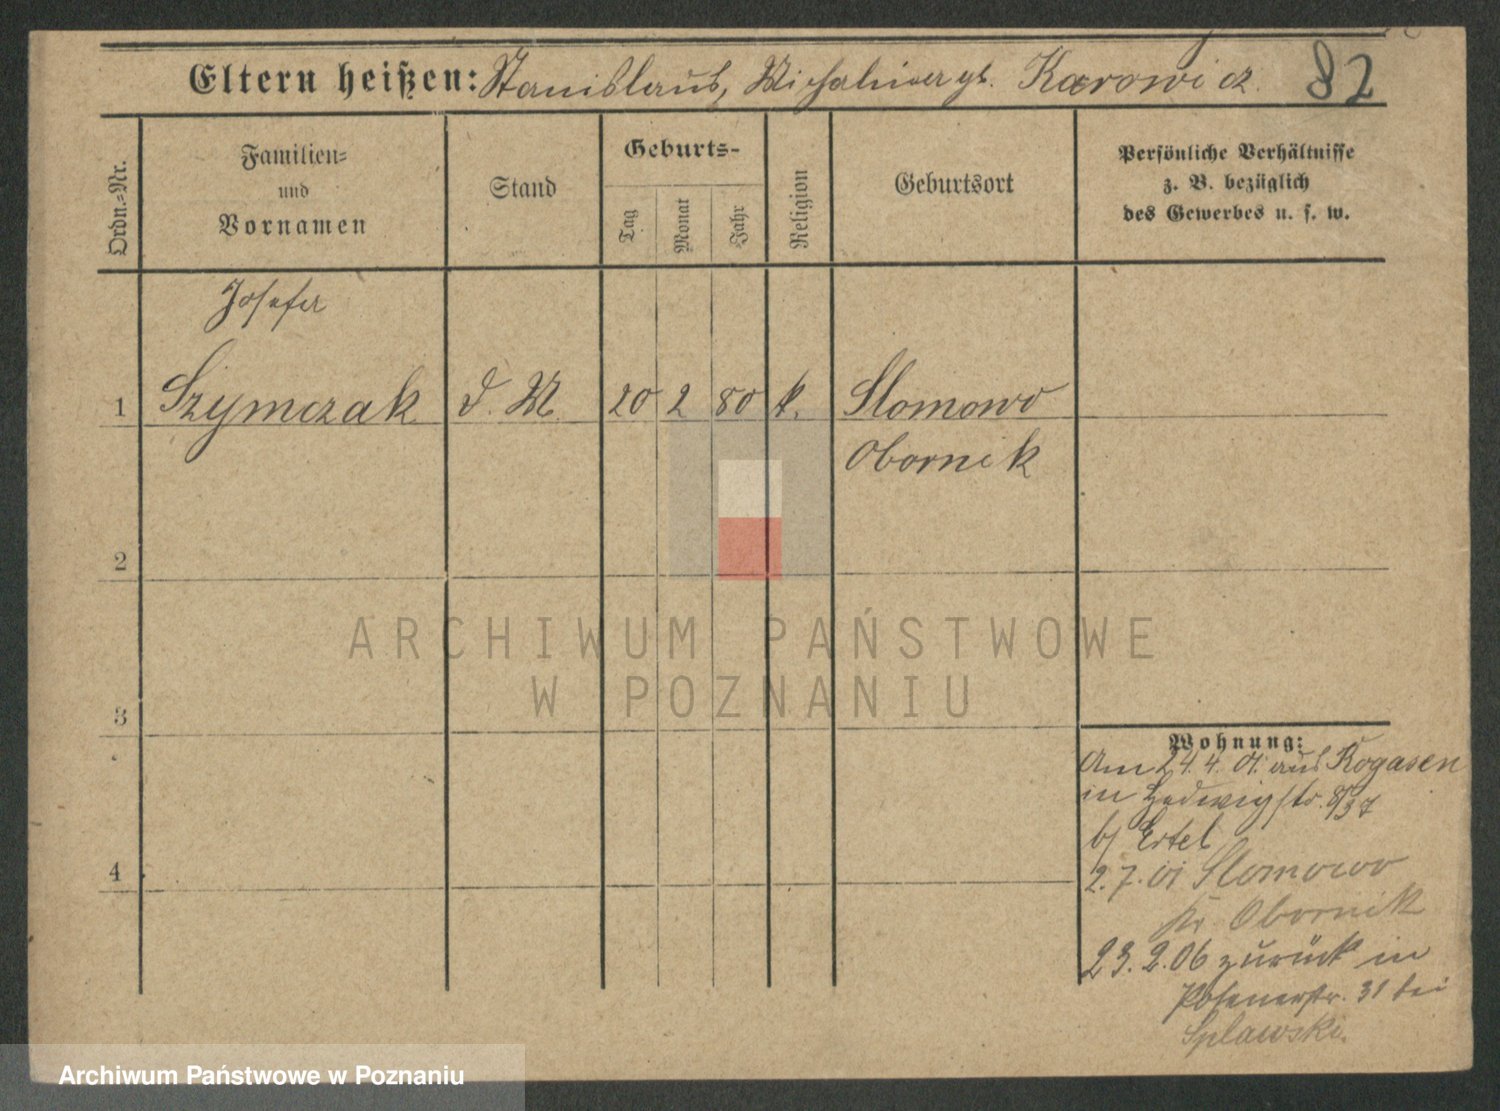 Eltern heißen: Stanislaus, Michalina geb. Karowicz. 82
Ordn.-Nr.
Familien-
und
Vornamen
Stand
Geburts-
Tag
Monat
Jahr
Religion
Geburtsort
Persönliche Verhältnisse
z. B. bezüglich
des Gewerbes u. s. w.
Josefa
1 Szymczak d. M. 20 2 80 k. Slomowo
Obornik
2
3
4
ARCHIWUM PAŃSTWOWE
W POZNANIU
Wohnung:
Am 24.4.01. aus Rogasen
in Hedwigstr. 8/37
b/ Ertel
2.7.01 Slomowo
Kr Obornik
23.2.06 zurück in
Posenerstr. 31 bei
Splawski.
Archiwum Państwowe w Poznaniu